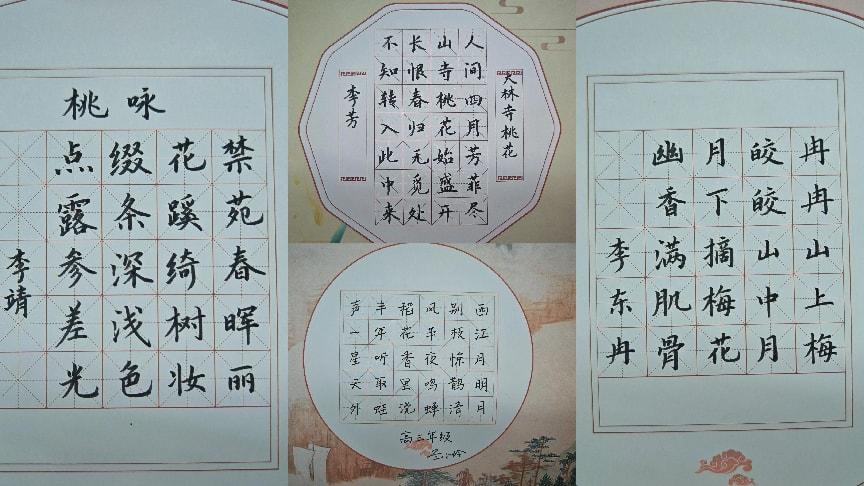 咏桃
禁苑春晖丽
花蹊绮树妆
缀条深浅色
点露参差光
李靖
大林寺桃花
人间四月芳菲尽
山寺桃花始盛开
长恨春归无觅处
不知转入此中来
李芳
西江月明月
别枝惊鹊清
风半夜鸣蝉
稻花香里说
丰年听取蛙
声一星天外
高三年级
冉冉山上梅
皎皎山中月
月下摘梅花
幽香满肌骨
李东冉